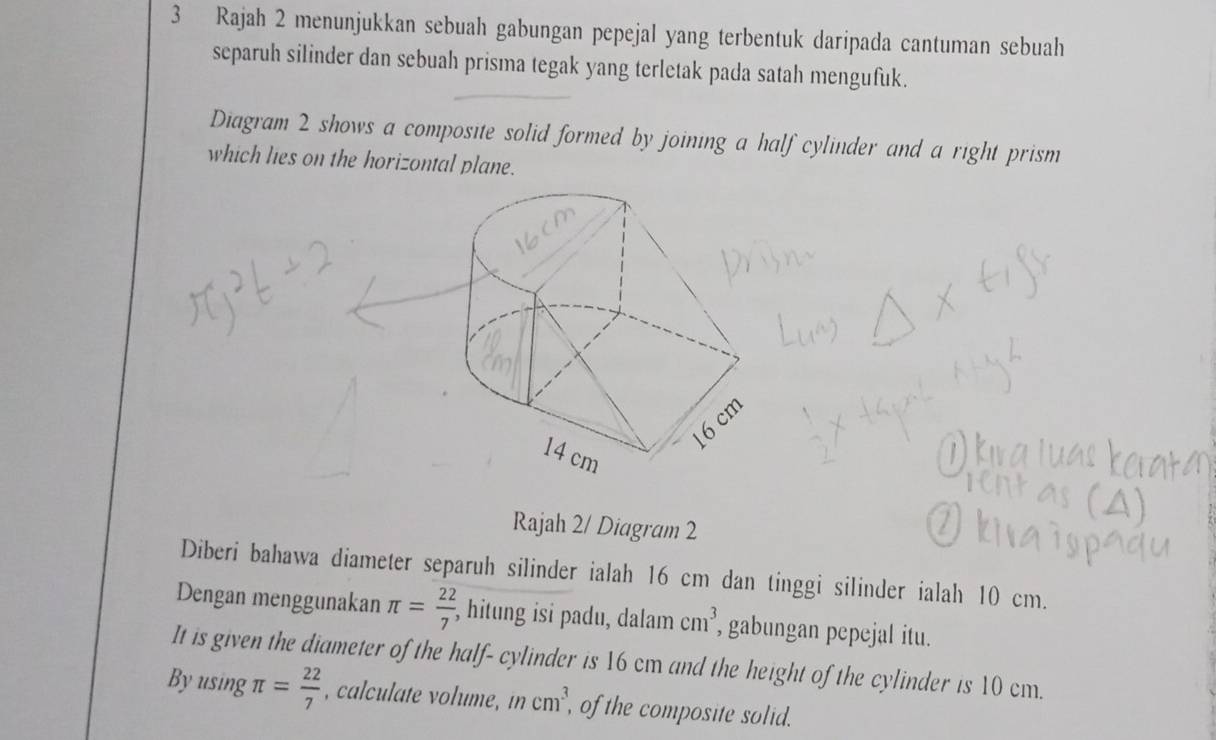 3 Rajah 2 menunjukkan sebuah gabungan pepejal yang terbentuk daripada cantuman sebuah
separuh silinder dan sebuah prisma tegak yang terletak pada satah mengufuk.
Diagram 2 shows a composite solid formed by joining a half cylinder and a right prism
which lies on the horizontal plane.
16 cm
πj²t ÷ 2
prism
Luas Δ × tigr
10 cm
1/2 ×
16 cm
14 cm
① kira luas keratan
rentas (Δ)
② kira isipadu
Rajah 2/ Diagram 2
Diberi bahawa diameter separuh silinder ialah 16 cm dan tinggi silinder ialah 10 cm.
Dengan menggunakan π = 22/7, hitung isi padu, dalam cm³, gabungan pepejal itu.
It is given the diameter of the half- cylinder is 16 cm and the height of the cylinder is 10 cm.
By using π = 22/7, calculate volume, in cm³, of the composite solid.